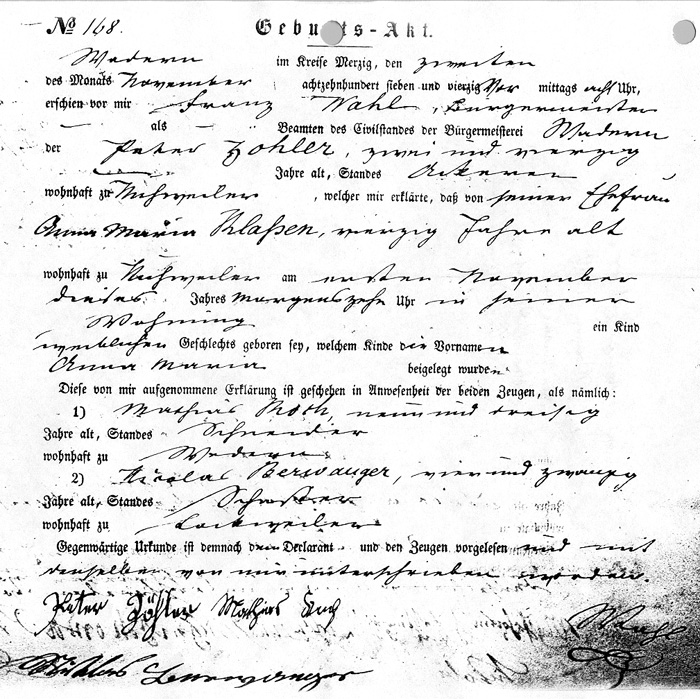 № 168.
Geburts-Akt.
Wadern im Kreise Merzig, den zweiten
des Monats November achtzehnhundert sieben und vierzig Vor mittags acht Uhr,
erschien vor mir Franz Wahl, Bürgermeister
als Beamten des Civilstandes der Bürgermeisterei Wadern
der Peter Zöhler, zwei und vierzig
Jahre alt, Standes Ackerer
wohnhaft zu Nuhweiler, welcher mir erklärte, daß von seiner Ehefrau
Anna Maria Klaßen, vierzig Jahre alt
wohnhaft zu Nuhweiler am ersten November
dieses Jahres Morgens zehn Uhr in seiner
Wohnung ein Kind
weiblichen Geschlechts geboren sey, welchem Kinde die Vornamen
Anna Maria beigelegt wurden
Diese von mir aufgenommene Erklärung ist geschehen in Anwesenheit der beiden Zeugen, als nämlich:
1) Mathias Koch, neun und dreisig
Jahre alt, Standes Schneider
wohnhaft zu Wadern
2) Nicolas Berwanger, vier und zwanzig
Jahre alt, Standes Schuster
wohnhaft zu Lockweiler
Gegenwärtige Urkunde ist demnach dem Declarant und den Zeugen vorgelesen und mit
denselben von mir unterschrieben worden.
Peter Zöhler Mathias Koch Wahl
Niklas Berwanger